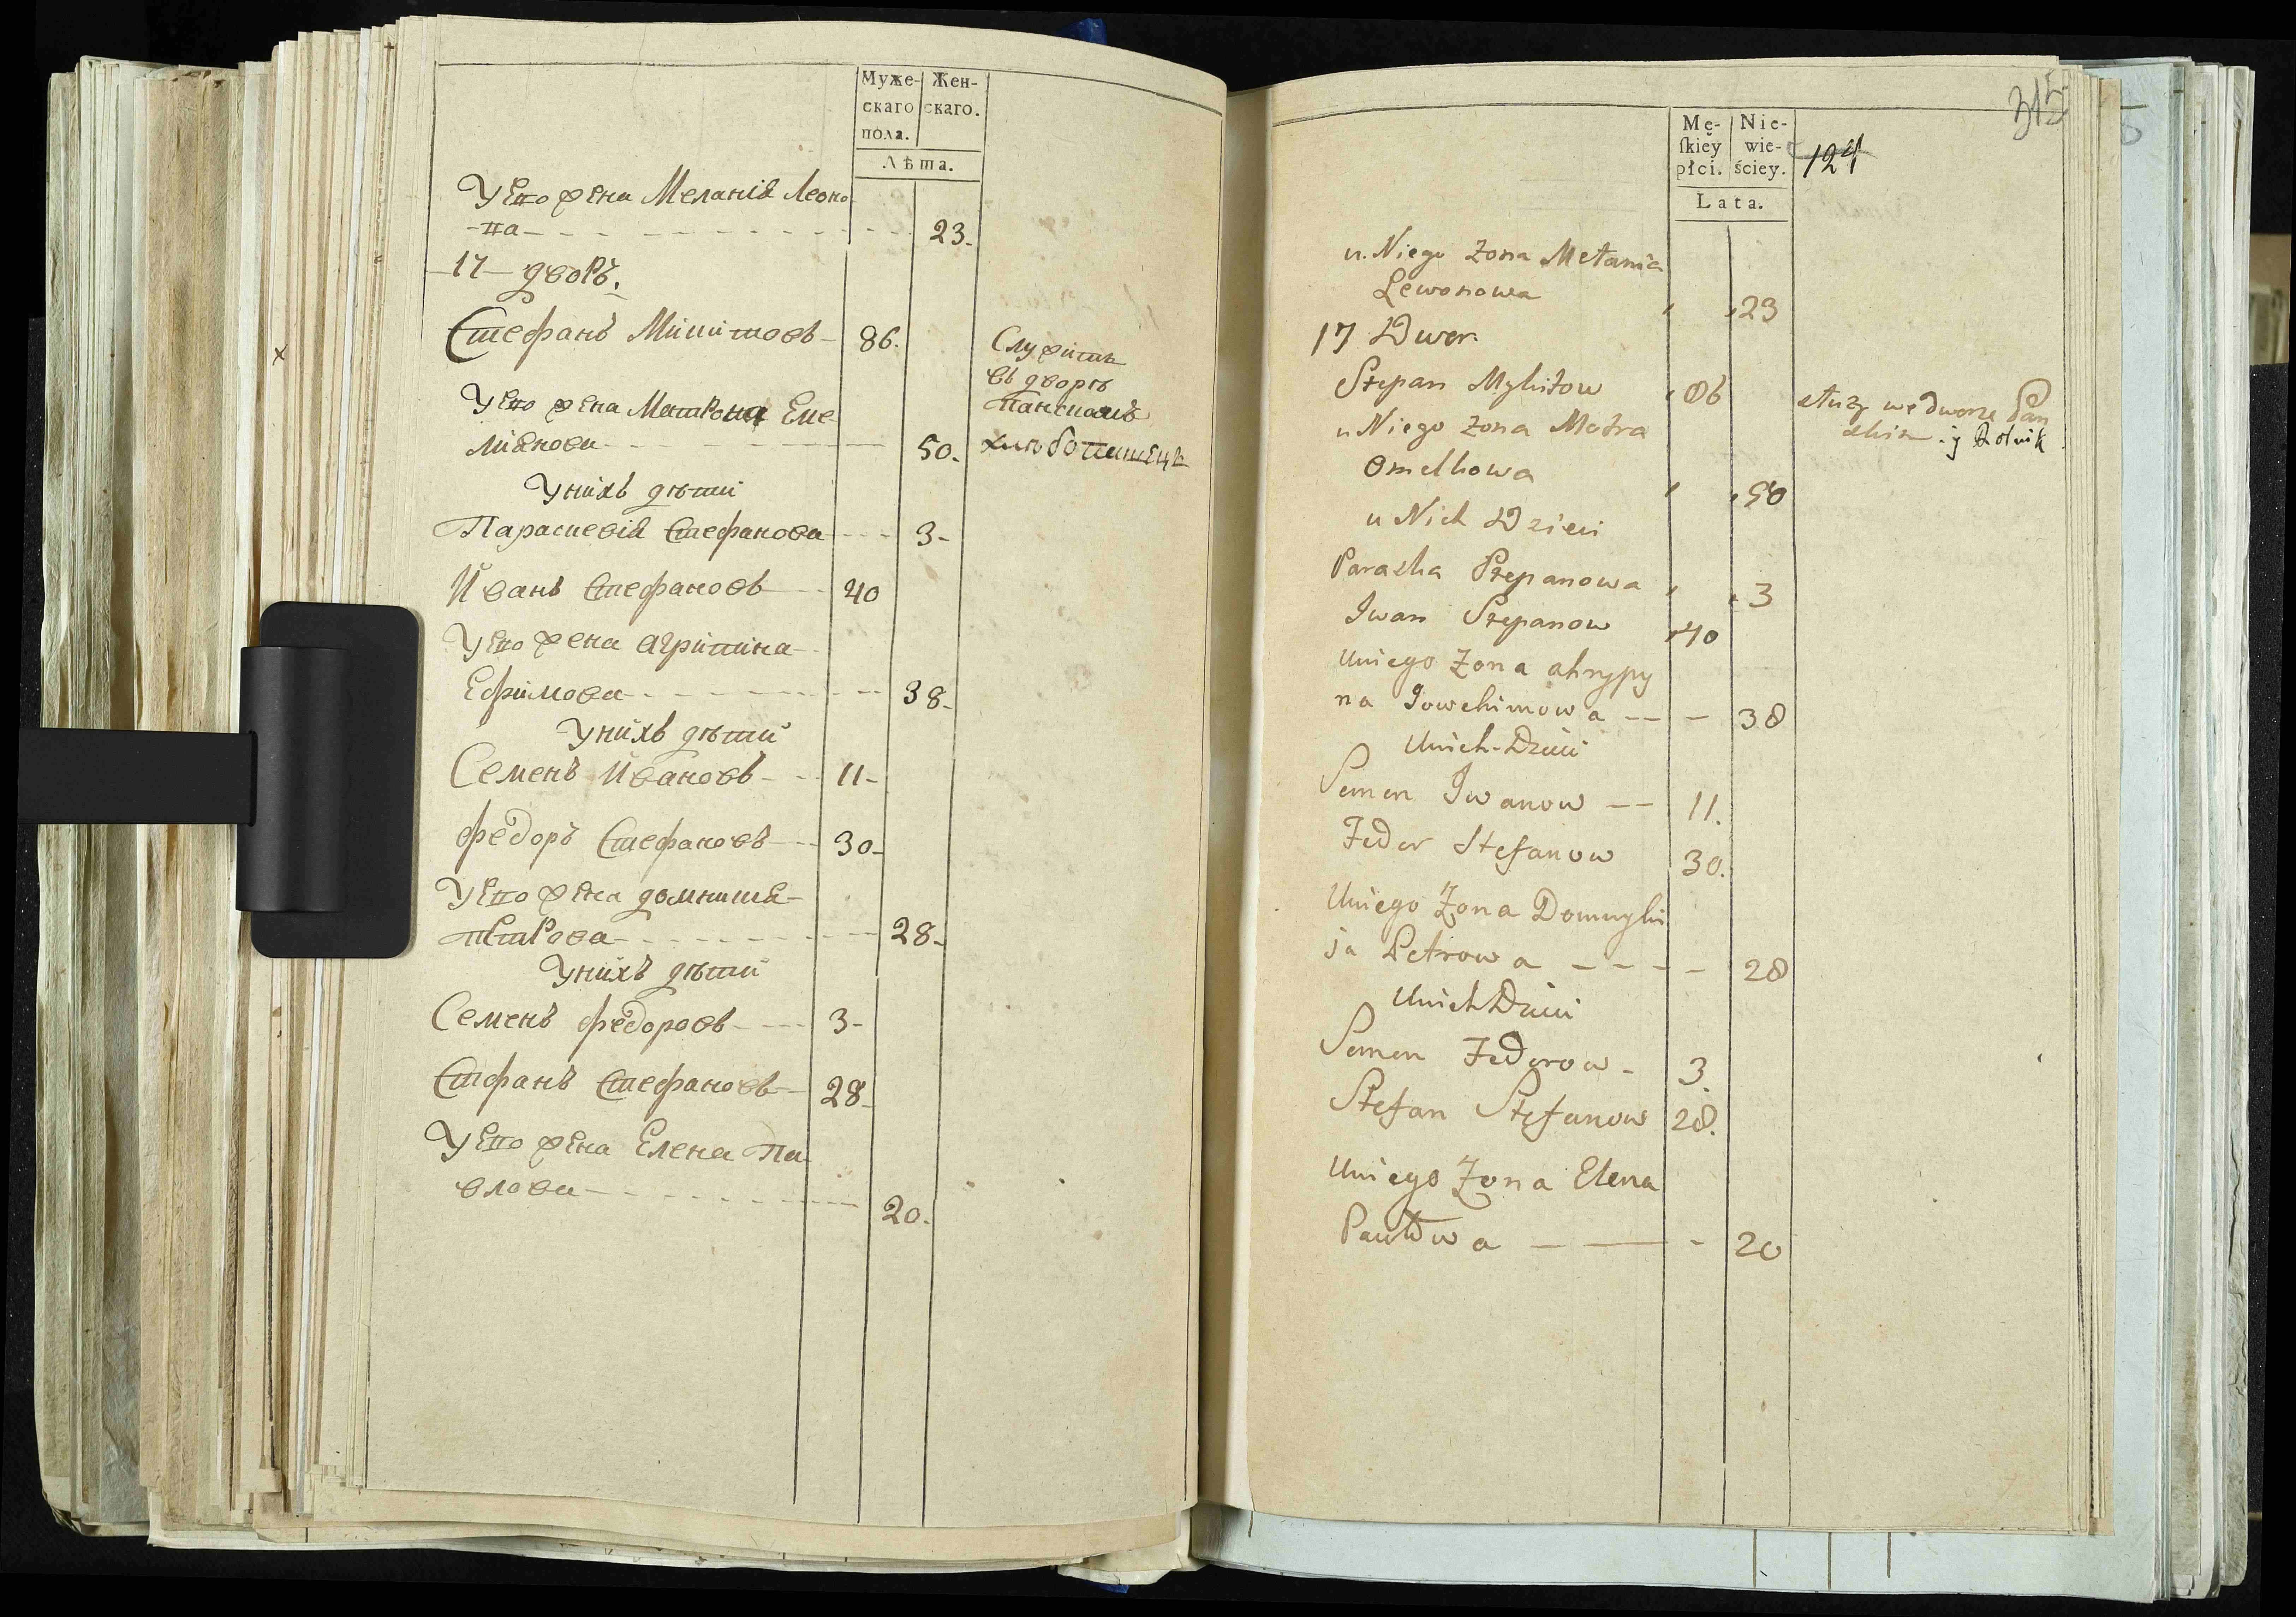 Муже-
скаго
пола.
Жен-
скаго.
Лѣта.
У Его жена Меланія Леоно
па 23.
17 дворъ.
Стефанъ Микитовъ 86.
Служитъ
въ дворѣ
У Его жена Матрона Еме
ліянова 50.
У нихъ дѣти
Параскевія Стефанова 3
Иванъ Стефановъ 40
У Его жена Агрипина
Ефимова 38.
У нихъ дѣти
Семенъ Ивановъ 11
Федоръ Стефановъ 30
У Его жена
Петрова 28
У нихъ дѣти
Семенъ Федоровъ 3
Стфанъ Стефановъ 28
У Его жена Елена Па
влова 20.
315
124
Mę-
ſkiey
płci.
Nie-
wie-
ściey.
Lata.
u Niego Zona Mełania
Lewonowa 23
17 Dwor.
Stepan Mykitow 86
u Niego Zona Motra
Omelkowa 50
służy we dworze Pań
skim i Rolnik
u Nich Dzieci
Paraska Stepanowa 3
Iwan Stepanow 40
Uniego Zona ahrypy
na Jowchimowa 38
Unich Dzieci
Semen Iwanow 11.
Fedor Stefanow 30.
Uniego Zona Domnyki
ja Petrowa 28
Unich Dzieci
Semen Fedorow 3.
Stefan Stefanow 28.
Uniego Zona Elena
Pawłowa 20